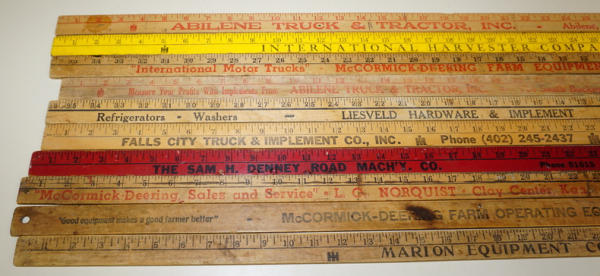 ABILENE TRUCK & TRACTOR, INC. - Abilene
INTERNATIONAL HARVESTER COMPA
"International Motor Trucks" McCORMICK-DEERING FARM EQUIPMEN
Measure Your Profits With Implements From ABILENE TRUCK & TRACTOR, INC.
Refrigerators - Washers - LIESVELD HARDWARE & IMPLEMENT
FALLS CITY TRUCK & IMPLEMENT CO., INC. IH Phone (402) 245-2437
THE SAM H. DENNEY ROAD MACH'Y. CO. Phone
"McCormick-Deering, Sales and Service" - L. G. NORQUIST - Clay Center Ka
"Good equipment makes a good farmer better" - McCORMICK-DEERING FARM OPERATING EQ
MARION EQUIPMENT CO